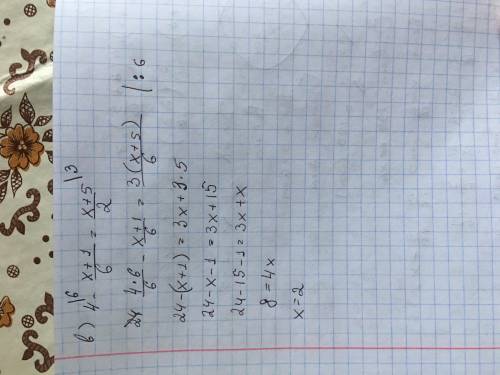 в) 4|⁶ - (x+1)/6 = (x+5)/2 |³
24 (4·6)/6 - (x+1)/6 = (3(x+5))/6 | : 6
24-(x+1) = 3x+3·5
24-x-1 = 3x+15
24-15-1 = 3x+x
8 = 4x
x = 2